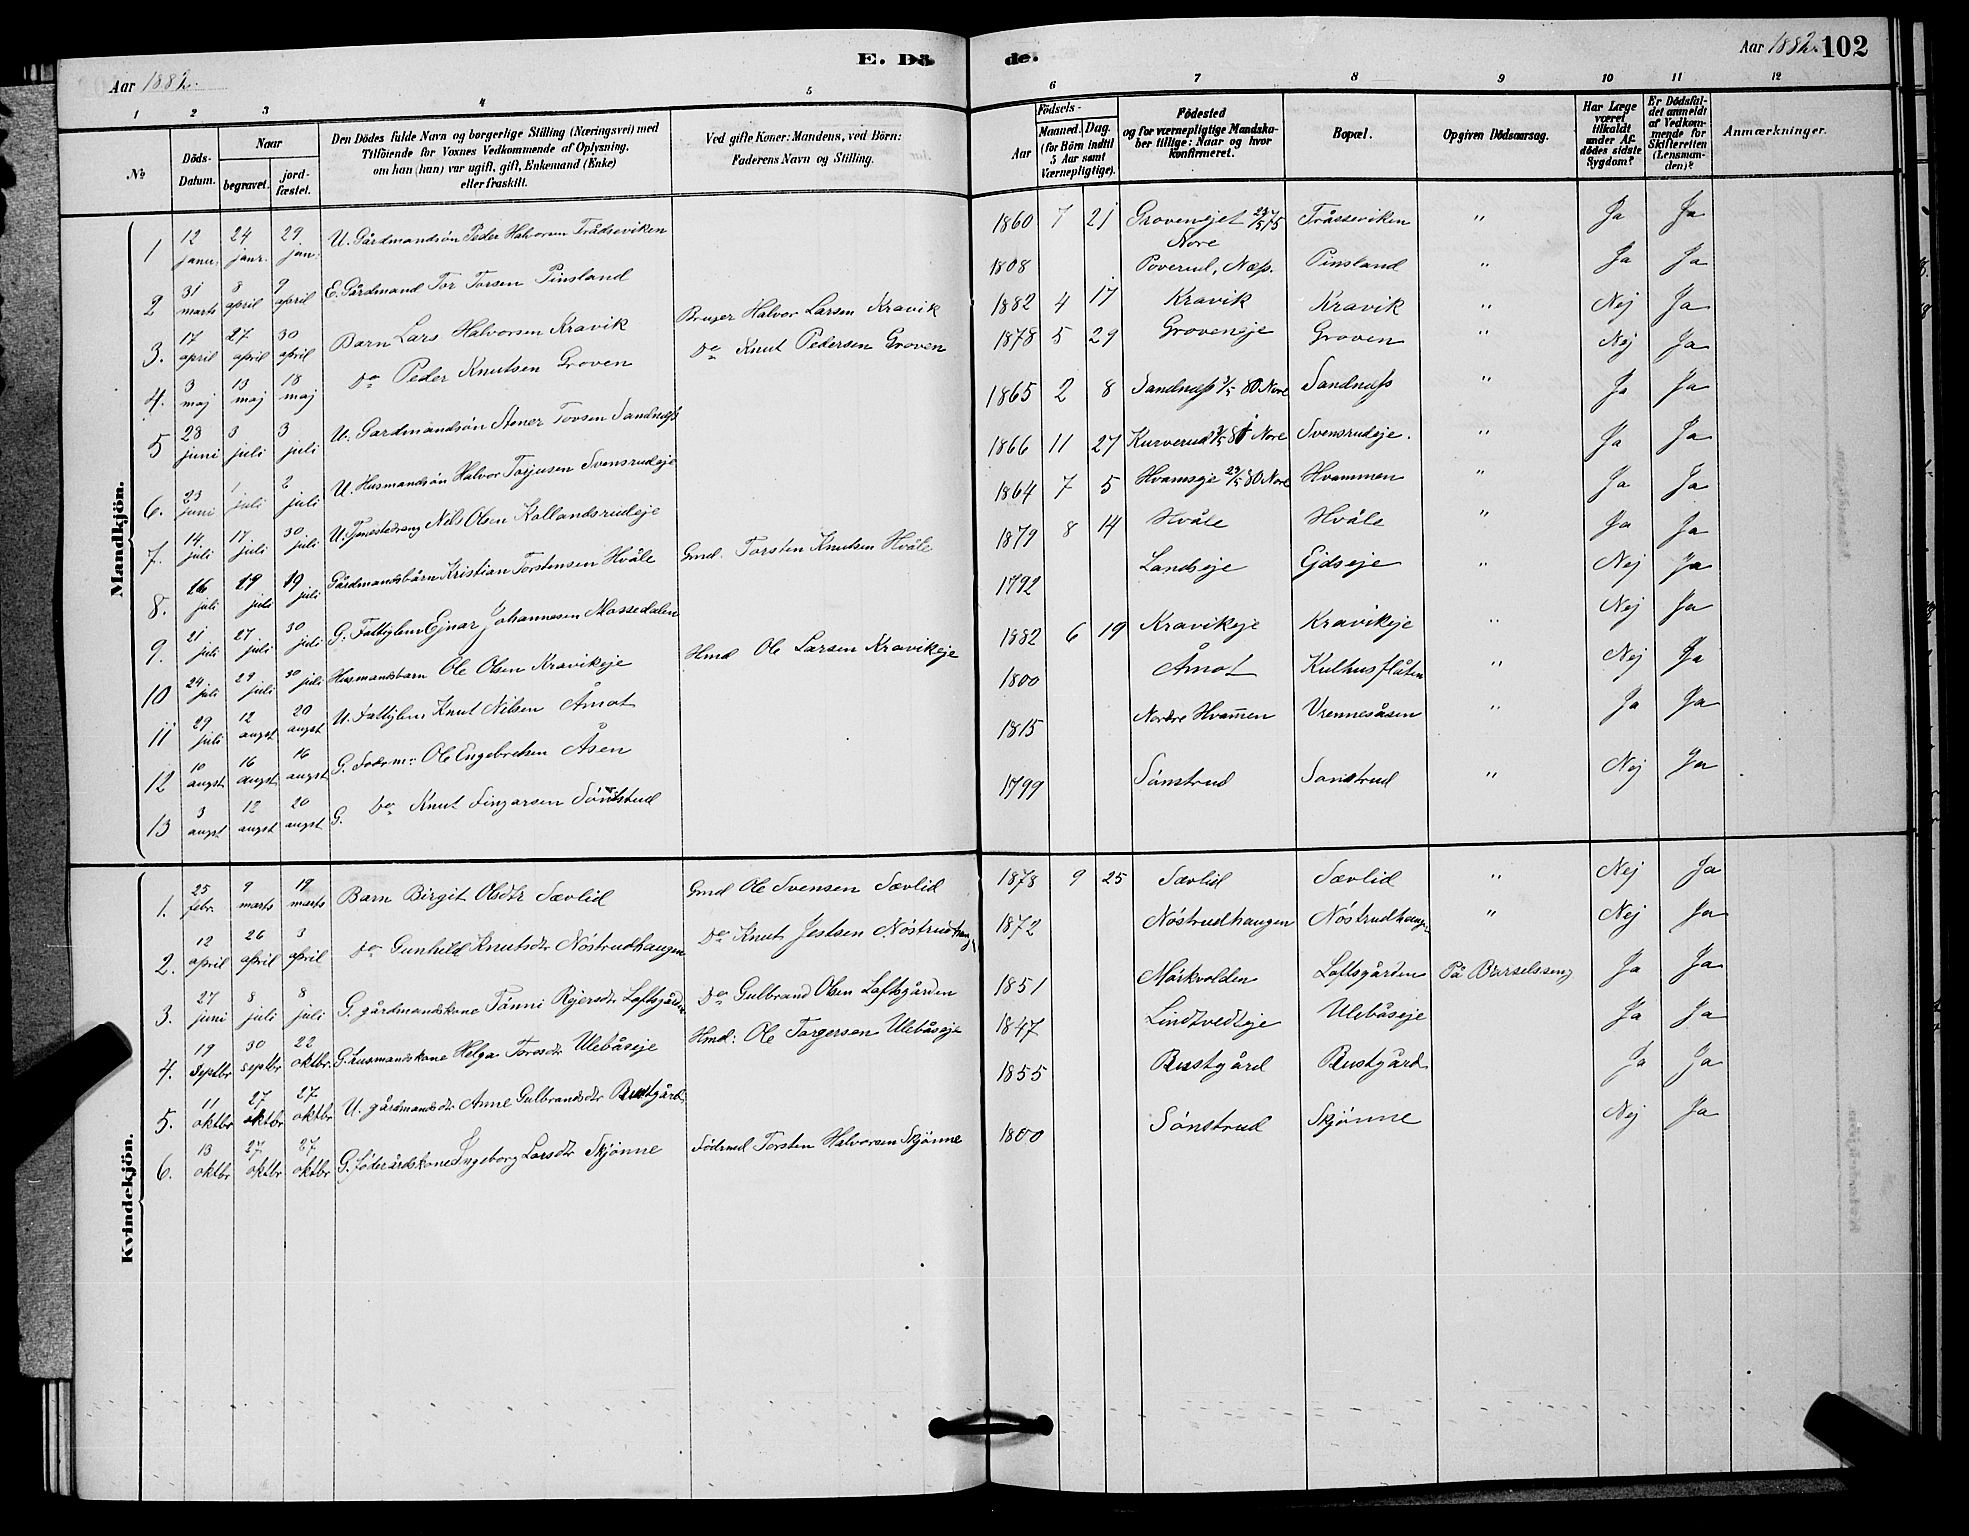 Aar 1882.
E. Dö
de.
Aar 1882. 102
1 2 3 4 5 6 7 8 9 10 11 12
No
Döds-Datum.
Naar
begravet.
jord-fæstet.
Den Dödes fulde Navn og borgerlige Stilling (Næringsvei) med
Tilföiende for Voxnes Vedkommende af Oplysning,
om han (hun) var ugift, gift, Enkemand (Enke)
eller fraskilt.
Ved gifte Koner: Mandens, ved Börn:
Faderens Navn og Stilling.
Födsels-
Aar
Maaned. Dag.
(for Börn indtil
5 Aar samt
Værnepligtige).
Födested
og for værnepligtige Mandska-
ber tillige: Naar og hvor
konfirmeret.
Bopæl.
Opgiven Dödsaarsag.
Har Læge
været
tilkaldt
under Af-
dödes sidste
Sygdom?
Er Dödsfal-
det anmeldt
af Vedkom-
mende for
Skifteretten
(Lensman-
den)?
Anmærkninger.
Mandkjön.
1 12 janu. 24 janr. 29 jan. U. Gårdmandsön Peder Halvorsen Trådseviken 1860 7 21 Grovenejet 23/5 75 Nore Tråsseviken " Ja Ja
2 31 marts 8 april 9 april E. Gårdmand Tor Torsen Pinsland 1808 Poverud, Næs. Pinsland " Ja Ja
3. 17 april 27 april 30 april Barn Lars Halvorsen Kravik Bruger Halvor Larsen Kravik 1882 4 17 Kravik Kravik " Nej Ja
4. 3 maj 13 maj 18 maj Do Peder Knutsen Groven Do Knut Pedersen Groven 1878 5 29 Groveneje Groven " Nej Ja
5 28 juni 3 juli 3 juli U. Gardmandsön Stener Torsen Sandnæss 1865 2 8 Sandnæss 80 Nore Sandnæss " Ja Ja
6. 23 juni 1 juli 2 juli U. Husmandsön Halvor Torjusen Svensrudeje 1866 11 27 Kurverud Nore Svensrudeje. " Ja Ja
7. 14 juli 17 juli 30 juli U. Tjenestedreng Nils Olsen Kollandsrudeje 1864 7 5 Hvamseje 23/5 80 Nore Hvammen " Ja Ja
8. 16 juli 19 juli 19 juli Gårdmandsbarn Kristian Torstensen Hvåle Gmd. Torsten Knutsen Hvåle 1879 8 14 Hvåle Hvåle " Ja Ja
9. 21 juli 27 juli 30 juli G. Fattiglem Ejnar Johannesen Mossedalen 1792 Landseje Ejdseje " Nej Ja
10 24 juli 29 juli 30 juli Husmandsbarn Ole Olsen Kravikeje Hmd Ole Larsen Kravikeje 1882 6 19 Kravikeje Kravikeje " Nej Ja
11 29 juli 12 augst 20 augst U. Fattiglem Knut Nilsen Åmot 1800 Åmot Kulhusflåten " Nej Ja
12 10 augst 16 augst 16 augst G. Föderm: Ole Engebretsen Åsen 1815 Nordre Hvammen Vrennesåsen " Ja Ja
13 3 augst 12 augst 20 augst G. Do Knut Fingarsen Sönstrud 1799 Sönstrud Sönstrud " Nej Ja
Kvindekjön.
1. 25 febr. 9 marts 19 marts Barn Birgit Olsdtr Sævlid Gmd Ole Svensen Sævlid 1878 9 25 Sævlid Sævlid " Nej Ja
2. 12 april 26 april 3 april Do Gunhild Knutsdtr Nöstrudhaugen Do Knut Jestsen Nöstrudhaug 1872 Nöstrudhaugen Nöstrudhaugen " Nej Ja
3. 27 juni 8 juli 8 juli G. gårdmandskone Tönni Rejersdtr Loftsgården Do Gulbrand Olsen Loftsgården 1851 Mörkvolden Loftsgården På Barselseng Ja Ja
4. 19 septbr 30 septbr 22 oktbr. G. husmandskone Helga Torosdtr Ulebåseje Hmd: Ole Torgersen Ulebåseje 1847 Lindtvedteje Ulebåseje Ja Ja
5. 11 oktbr 27 oktbr 27 oktbr U. gårdmandsdtr Anne Gulbrandsdtr Rustgård 1855 Rustgård Rustgård Ja Ja
6. 13 oktbr 27 oktbr 27 oktbr G. föderådskone Ingeborg Larsdtr Skjönne Födrmd Torsten Halvorsen Skjönne 1800 Sönstrud Skjönne Nej Ja